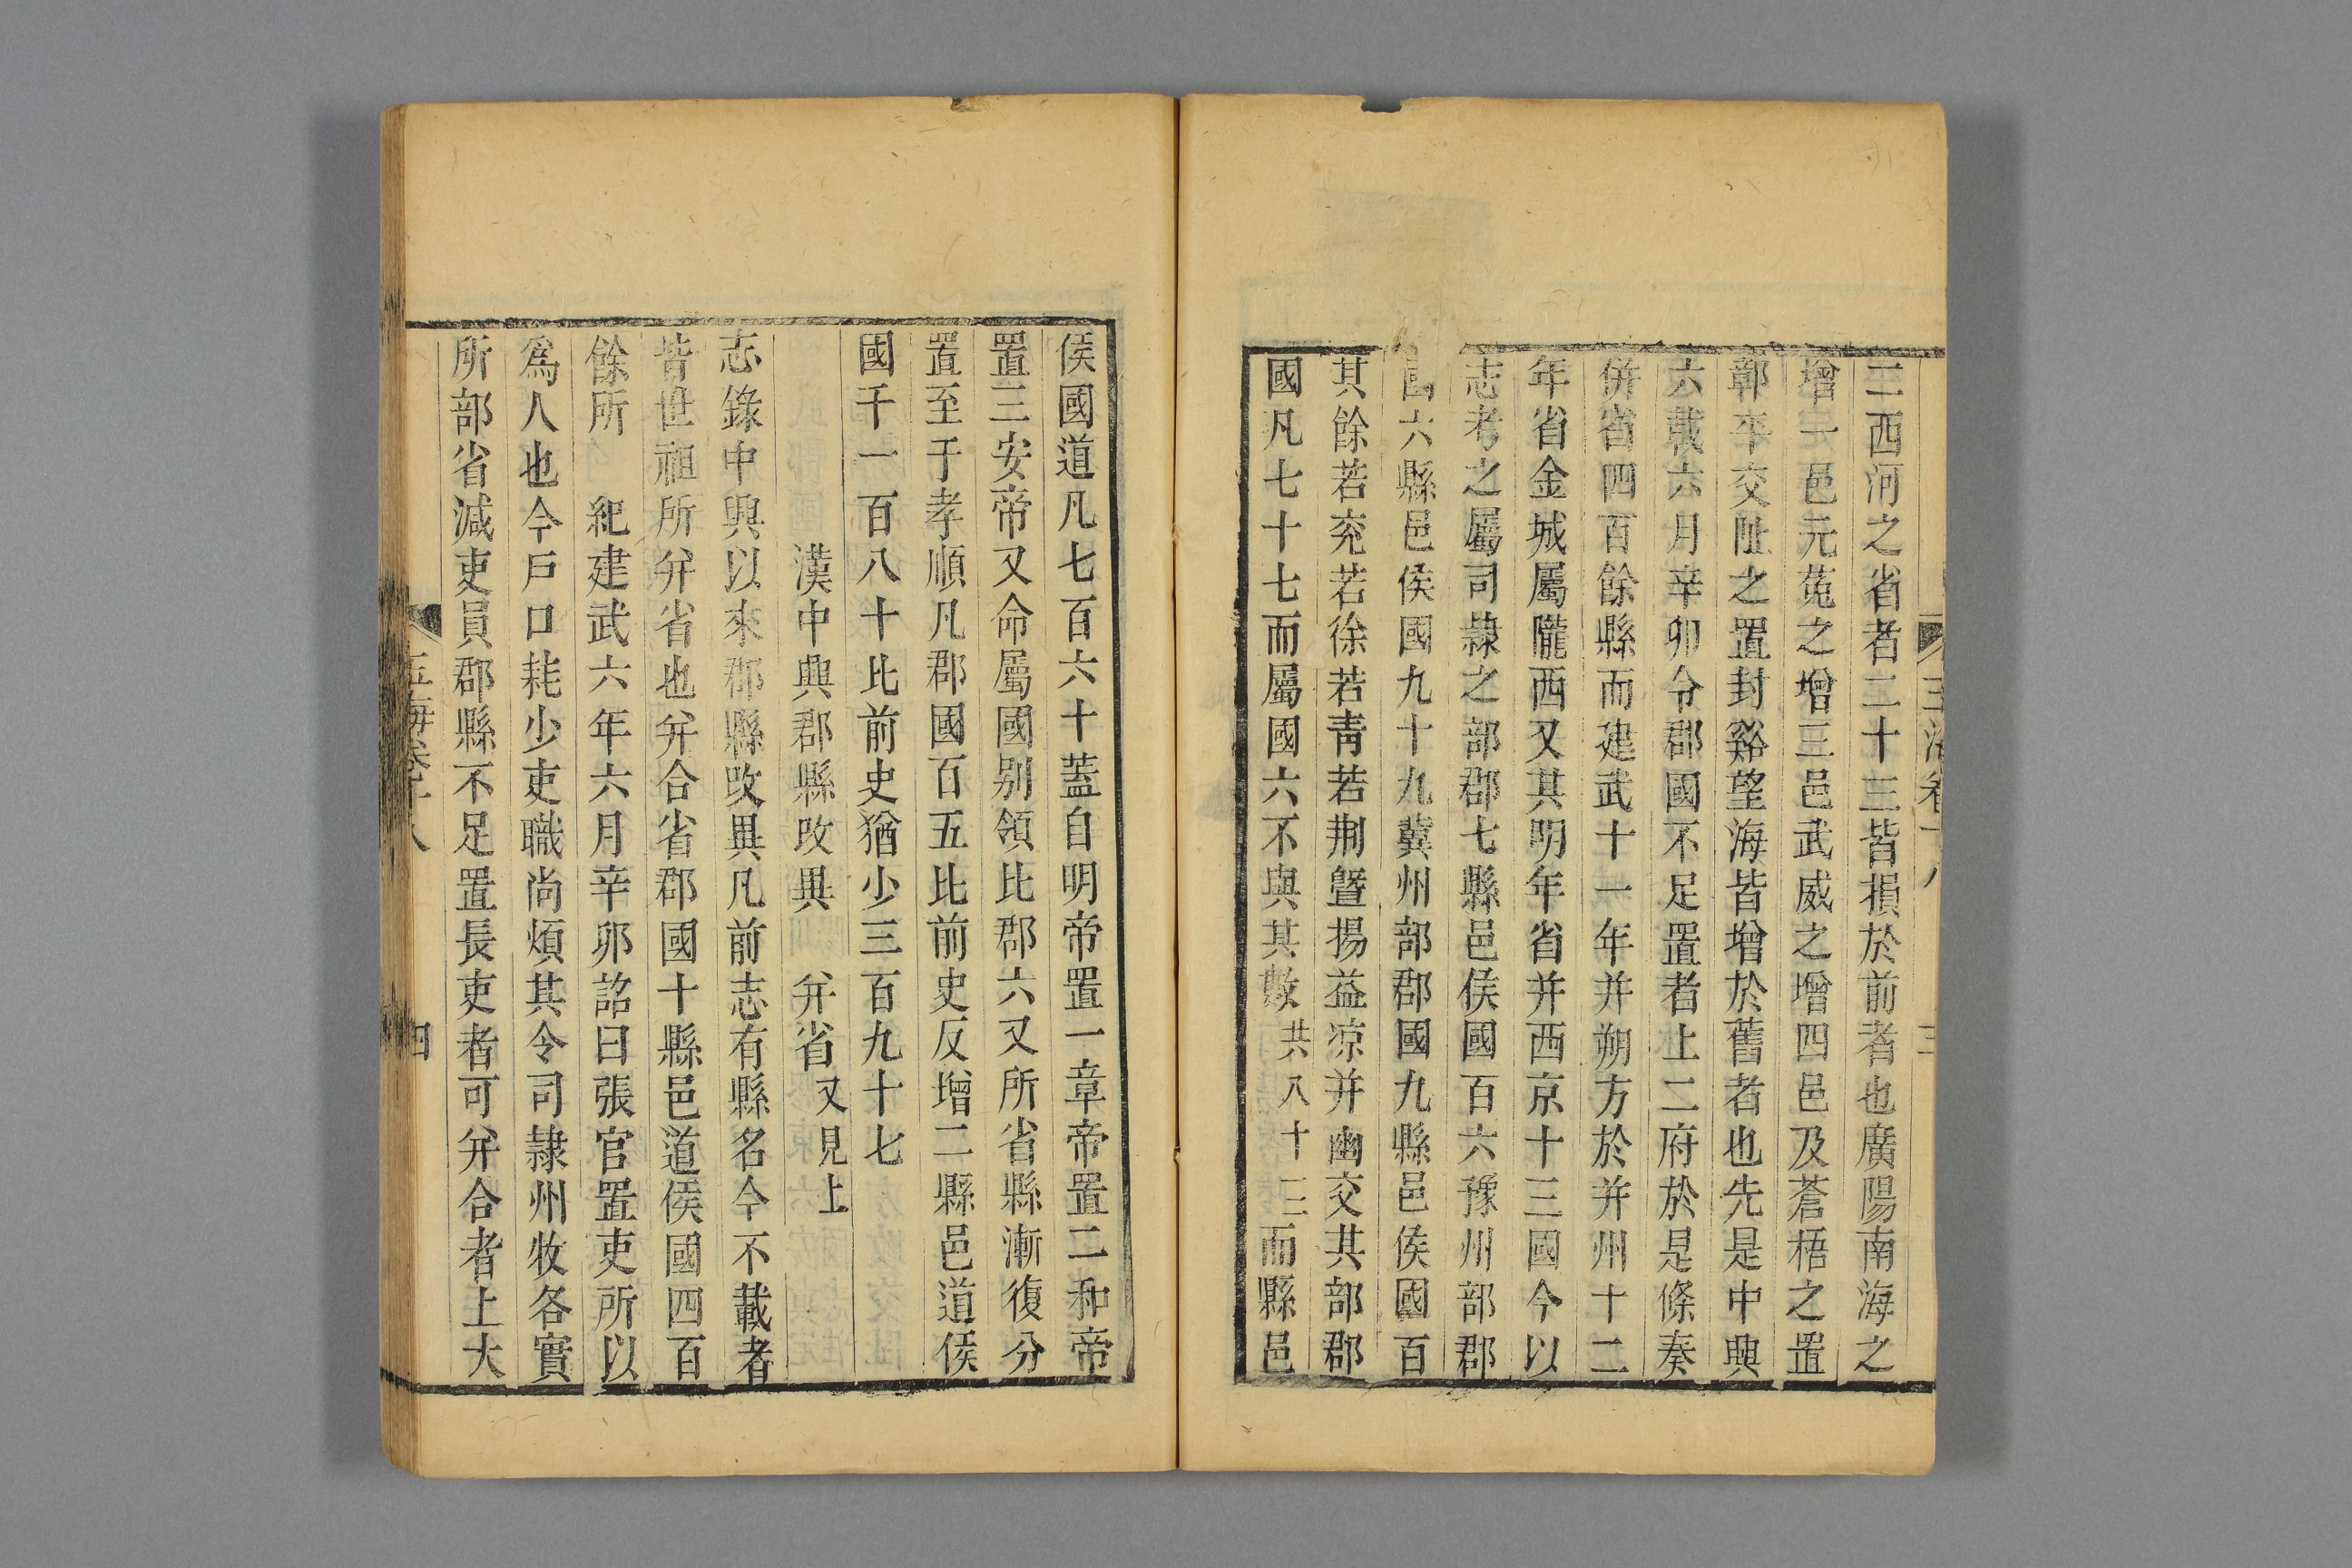 玉海卷十八 三
三西河之省者二十三皆損於前者也廣陽南海之
增一邑元菟之增三邑武威之增四邑及蒼梧之置
鄣平交阯之置封谿望海皆增於舊者也先是中興
六載六月辛卯令郡國不足置者上二府於是條奏
併省四百餘縣而建武十一年并朔方於并州十二
年省金城屬隴西又其明年省并西京十三國今以
志考之屬司隸之部郡七縣邑侯國百六豫州部郡
國六縣邑侯國九十九冀州部郡國九縣邑侯國百
其餘若兖若徐若青若荆曁揚益凉并幽交其部郡
國凡七十七而屬國六不與其數共八十三而縣邑
侯國道凡七百六十蓋自明帝置一章帝置二和帝
置三安帝又命屬國别領比郡六又所省縣漸復分
置至于孝順凡郡國百五比前史反增二縣邑道侯
國千一百八十比前史猶少三百九十七
漢中興郡縣攺異 弁省又見上
志錄中興以來郡縣攺異凡前志有縣名今不載者
皆世祖所弁省也弁合省郡國十縣邑道侯國四百
餘所 紀建武六年六月辛卯詔曰張官置吏所以
爲人也今戸口耗少吏職尚煩其令司隸州牧各實
所部省減吏員郡縣不足置長吏者可弁合者上大
玉海卷十八 四